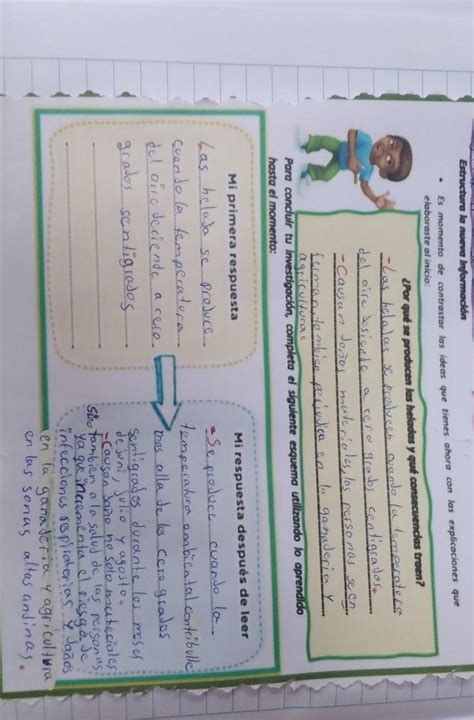 Estructura la nueva información
• Es momento de contrastar las ideas que tienes ahora con las explicaciones que
elaboraste al inicio:
¿Por qué se producen las heladas y qué consecuencias traen?
-Las heladas se producen cuando la temperatura
del aire desiende a cero grados centigrados.
-Causan daños materiales, las personas se en
ferman tambien perjudica en la ganaderica y
agricultura.
Para concluir tu investigación, completa el siguiente esquema utilizando lo aprendido
hasta el momento:
Mi primera respuesta
Las helada se produce
cuando la temperatura
del aire deciende a cero
grados sentigrados
Mi respuesta después de leer
• Se produce cuando la
temperatura ambiental
mas alla de los cero grados
sentigrados durante los meses
de juni, julio y agusto.
-Causan daño no solo materiales
sino tambien a la salud de las personas
ya que incrementa el riesgo de
infecciones respiratorias y daños
en la ganaderia y agricultura
en las sonas altas andinas.